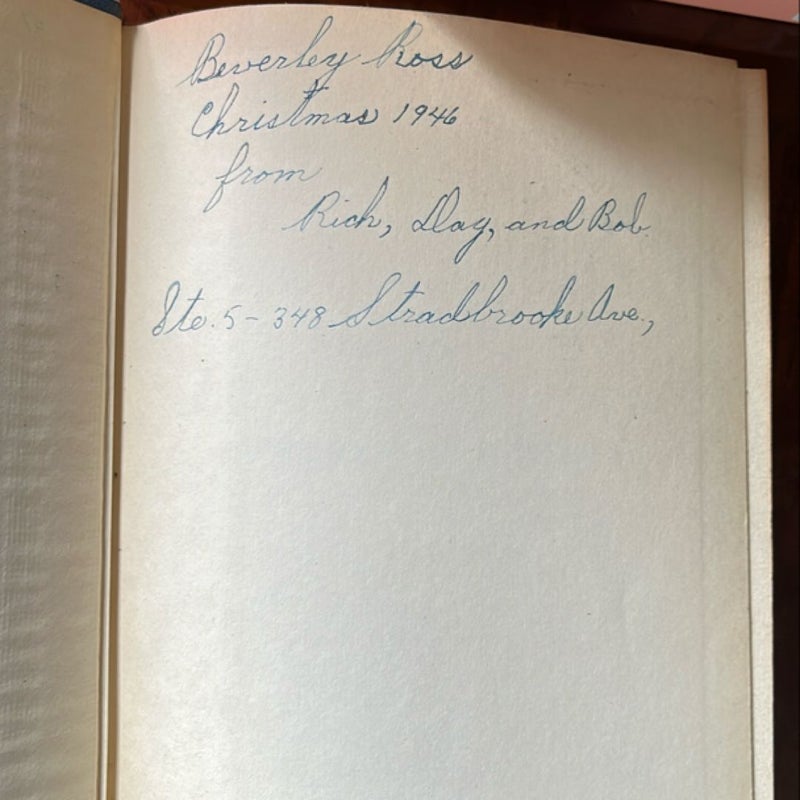 Beverley Ross
Christmas 1946
from
Rich, Day, and Bob.
Ste. 5 - 348 Stradbrooke Ave.,